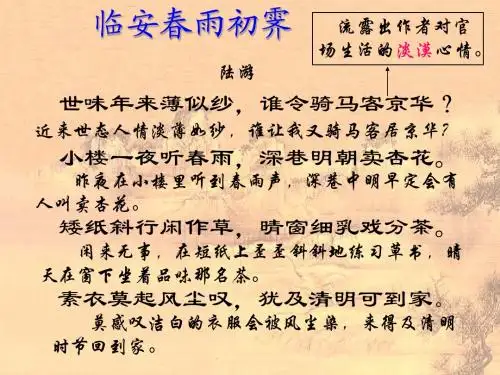 临安春雨初霁
流露出作者对官
场生活的淡漠心情。
陆游
世味年来薄似纱，谁令骑马客京华？
近来世态人情淡薄如纱，谁让我又骑马客居京华？
小楼一夜听春雨，深巷明朝卖杏花。
昨夜在小楼里听到春雨声，深巷中明早定会有
人叫卖杏花。
矮纸斜行闲作草，晴窗细乳戏分茶。
闲来无事，在短纸上歪歪斜斜地练习草书，晴
天在窗下坐着品味那名茶。
素衣莫起风尘叹，犹及清明可到家。
莫感叹洁白的衣服会被风尘染，来得及清明
时节回到家。